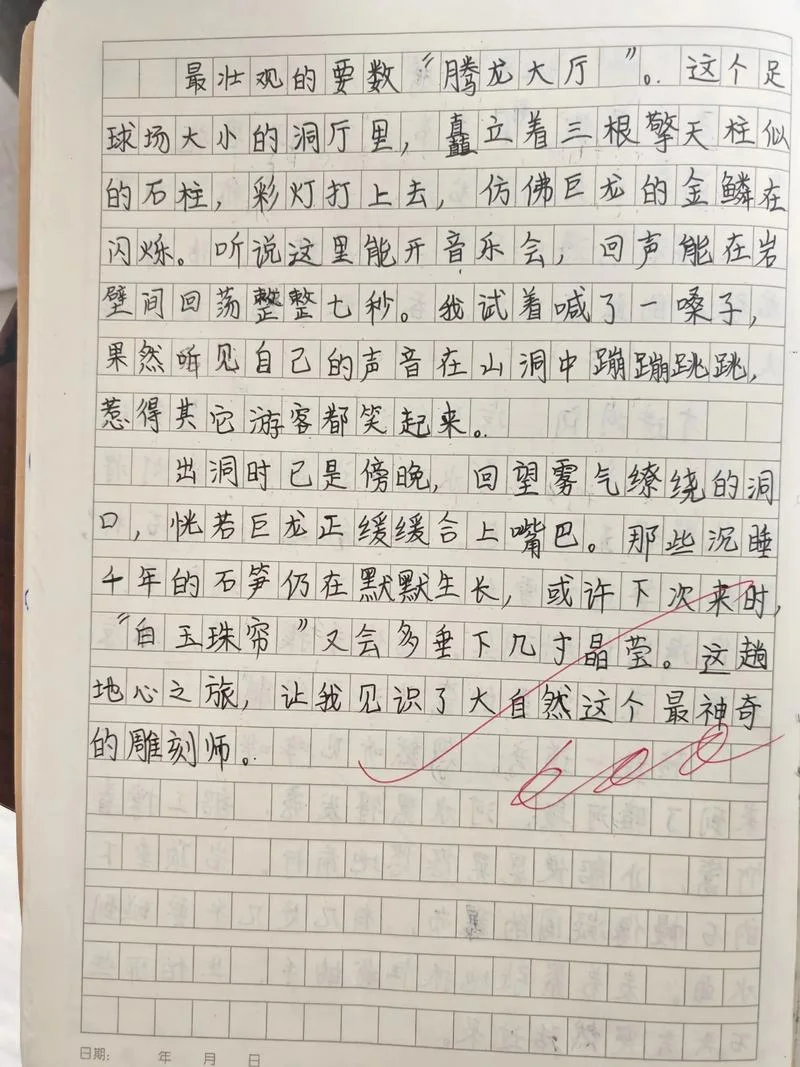 最壮观的要数“腾龙大厅”。这个足
球场大小的洞厅里，矗立着三根擎天柱似
的石柱，彩灯打上去，仿佛巨龙的金鳞在
闪烁。听说这里能开音乐会，回声能在岩
壁间回荡整整七秒。我试着喊了一嗓子，
果然听见自己的声音在山洞中蹦蹦跳跳，
惹得其它游客都笑起来。
出洞时已是傍晚，回望雾气缭绕的洞
口，恍若巨龙正缓缓合上嘴巴。那些沉睡
千年的石笋仍在默默生长，或许下次来时，
“白玉珠帘”又会多垂下几寸晶莹。这趟
地心之旅，让我见识了大自然这个最神奇
的雕刻师。
日期： 年 月 日